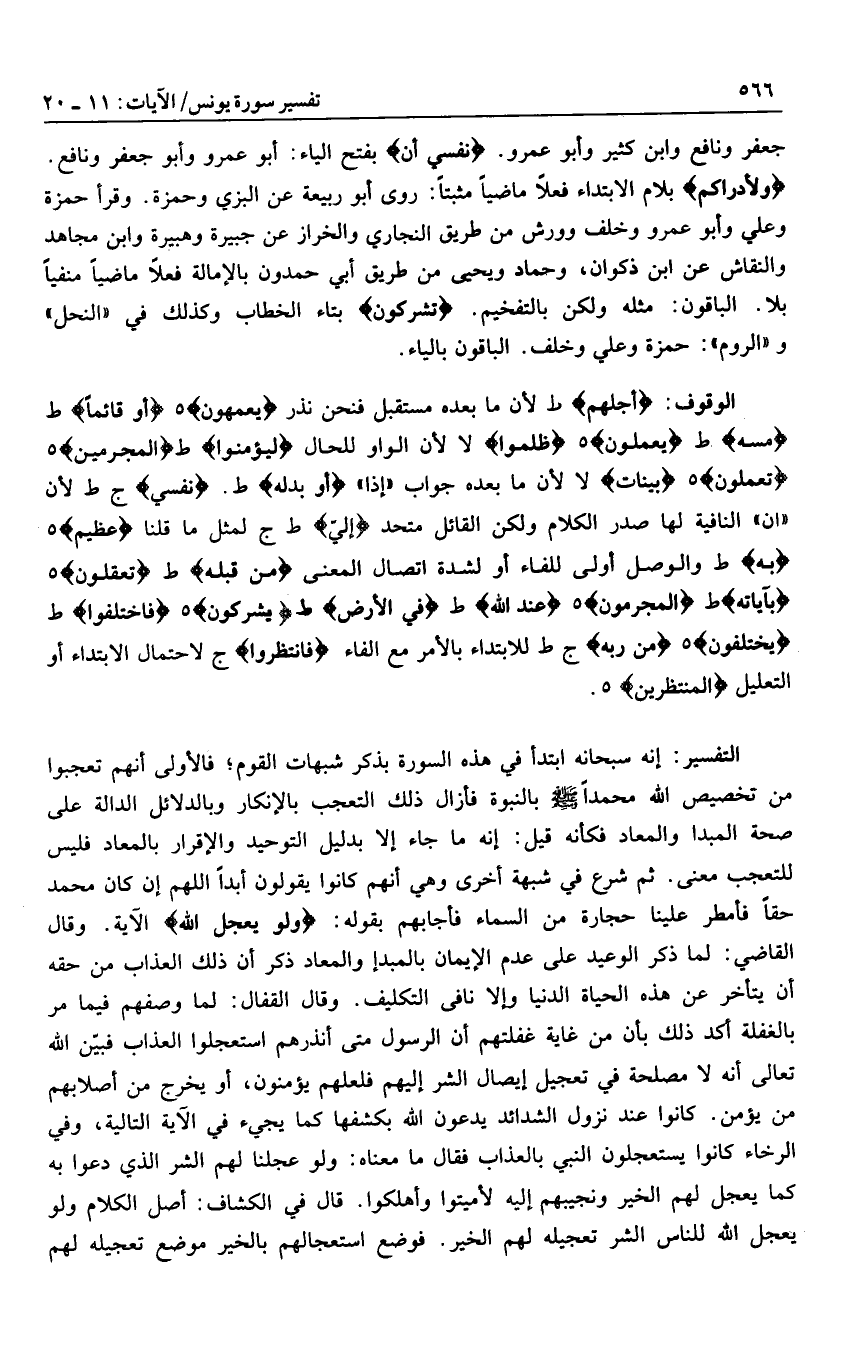 ٥٦٦
تفسير سورة يونس/ الآيات: ١١ ـ ٢٠
جعفر ونافع وابن كثير وأبو عمرو. ﴿نفسي أن﴾ بفتح الياء: أبو عمرو وأبو جعفر ونافع.
﴿ولأدراكم﴾ بلام الابتداء فعلاً ماضياً مثبتاً: روى أبو ربيعة عن البزي وحمزة. وقرأ حمزة
وعلي وأبو عمرو وخلف وورش من طريق النجاري والخراز عن جبيرة وهبيرة وابن مجاهد
والنقاش عن ابن ذكوان، وحماد ويحيى من طريق أبي حمدون بالإمالة فعلاً ماضياً منفياً
بلا. الباقون: مثله ولكن بالتفخيم. ﴿تشركون﴾ بتاء الخطاب وكذلك في «النحل»
و «الروم»: حمزة وعلي وخلف. الباقون بالياء.
الوقوف: ﴿أجلهم﴾ ط لأن ما بعده مستقبل فنحن نذر ﴿يعمهون﴾٥ ﴿أو قائماً﴾ ط
﴿مسه﴾ ط ﴿يعملون﴾٥ ﴿ظلموا﴾ لا لأن الواو للحال ﴿ليؤمنوا﴾ ط﴿المجرمين﴾٥
﴿تعملون﴾٥ ﴿بينات﴾ لا لأن ما بعده جواب «إذا» ﴿أو بدله﴾ ط. ﴿نفسي﴾ ج ط لأن
«ان» النافية لها صدر الكلام ولكن القائل متحد ﴿إليّ﴾ ط ج لمثل ما قلنا ﴿عظيم﴾٥
﴿به﴾ ط والوصل أولى للفاء أو لشدة اتصال المعنى ﴿من قبله﴾ ط ﴿تعقلون﴾٥
﴿بآياته﴾ط ﴿المجرمون﴾٥ ﴿عند الله﴾ ط ﴿في الأرض﴾ ط﴿ يشركون﴾٥ ﴿فاختلفوا﴾ ط
﴿يختلفون﴾٥ ﴿من ربه﴾ ج ط للابتداء بالأمر مع الفاء ﴿فانتظروا﴾ ج لاحتمال الابتداء أو
التعليل ﴿المنتظرين﴾ ٥ .
التفسير: إنه سبحانه ابتدأ في هذه السورة بذكر شبهات القوم؛ فالأولى أنهم تعجبوا
من تخصيص الله محمداً ﷺ بالنبوة فأزال ذلك التعجب بالإنكار وبالدلائل الدالة على
صحة المبدا والمعاد فكأنه قيل: إنه ما جاء إلا بدليل التوحيد والإقرار بالمعاد فليس
للتعجب معنى. ثم شرع في شبهة أخرى وهي أنهم كانوا يقولون أبداً اللهم إن كان محمد
حقاً فأمطر علينا حجارة من السماء فأجابهم بقوله: ﴿ولو يعجل الله﴾ الآية. وقال
القاضي: لما ذكر الوعيد على عدم الإيمان بالمبدإ والمعاد ذكر أن ذلك العذاب من حقه
أن يتأخر عن هذه الحياة الدنيا وإلا نافى التكليف. وقال القفال: لما وصفهم فيما مر
بالغفلة أكد ذلك بأن من غاية غفلتهم أن الرسول متى أنذرهم استعجلوا العذاب فبيّن الله
تعالى أنه لا مصلحة في تعجيل إيصال الشر إليهم فلعلهم يؤمنون، أو يخرج من أصلابهم
من يؤمن. كانوا عند نزول الشدائد يدعون الله بكشفها كما يجيء في الآية التالية، وفي
الرخاء كانوا يستعجلون النبي بالعذاب فقال ما معناه: ولو عجلنا لهم الشر الذي دعوا به
كما يعجل لهم الخير ونجيبهم إليه لأميتوا وأهلكوا. قال في الكشاف: أصل الكلام ولو
يعجل الله للناس الشر تعجيله لهم الخير. فوضع استعجالهم بالخير موضع تعجيله لهم